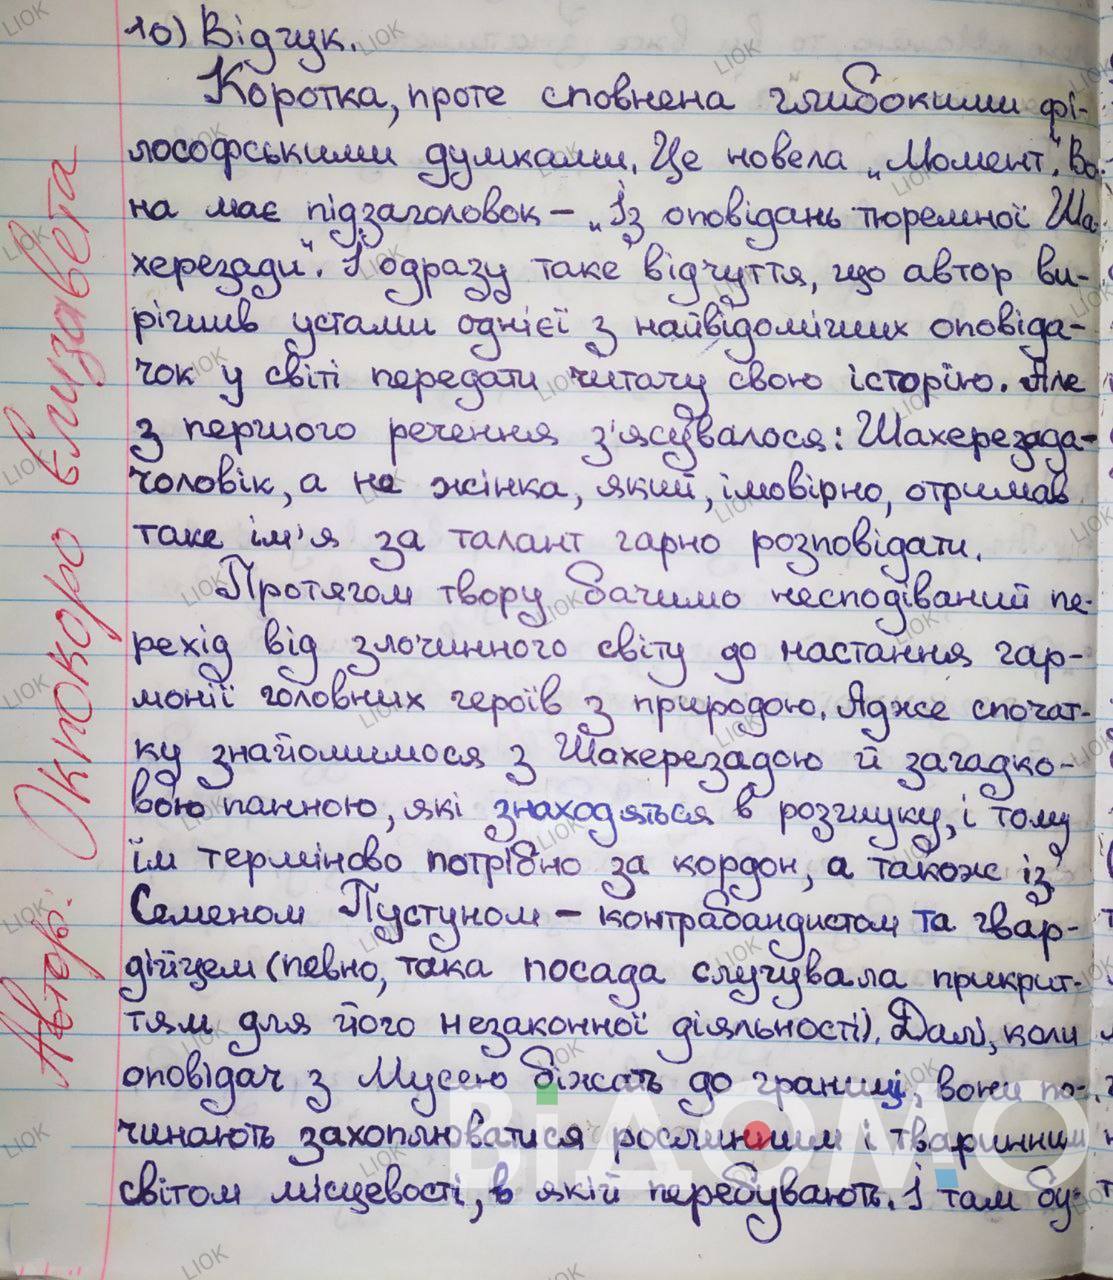 10) Відгук.
Коротка, проте сповнена глибокими фі-
лософськими думками. Це новела „Момент". Во-
на має підзаголовок – „Із оповідань тюремної Ша-
херезади". І одразу таке відчуття, що автор ви-
рішив устами однієї з найвідоміших оповіда-
чок у світі передати читачу свою історію. Але
з першого речення з'ясувалося: Шахерезада-
чоловік, а не жінка, який, імовірно, отримав
таке ім'я за талант гарно розповідати.
Протягом твору бачимо несподіваний пе-
рехід від злочинного світу до настання гар-
монії головних героїв з природою. Адже спочат-
ку знайомимося з Шахерезадою й загадко-
вою панною, які знаходяться в розшуку, і тому
їм терміново потрібно за кордон, а також із
Семеном Пустуном – контрабандистом та гвар-
дійцем (певно, така посада слугувала прикрит-
тям для його незаконної діяльності). Далі, коли
оповідач з Мусею біжать до границі, вони по-
чинають захоплюватися рослинним і тваринним
світом місцевості, в якій перебувають. І там бу-
Автор: Окпокоро Єлизавета
ВІДОМО
LIOK